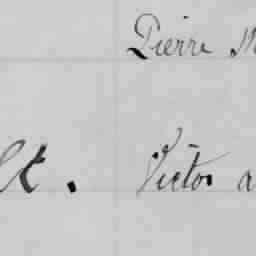 Pierre M
lt. Victor a